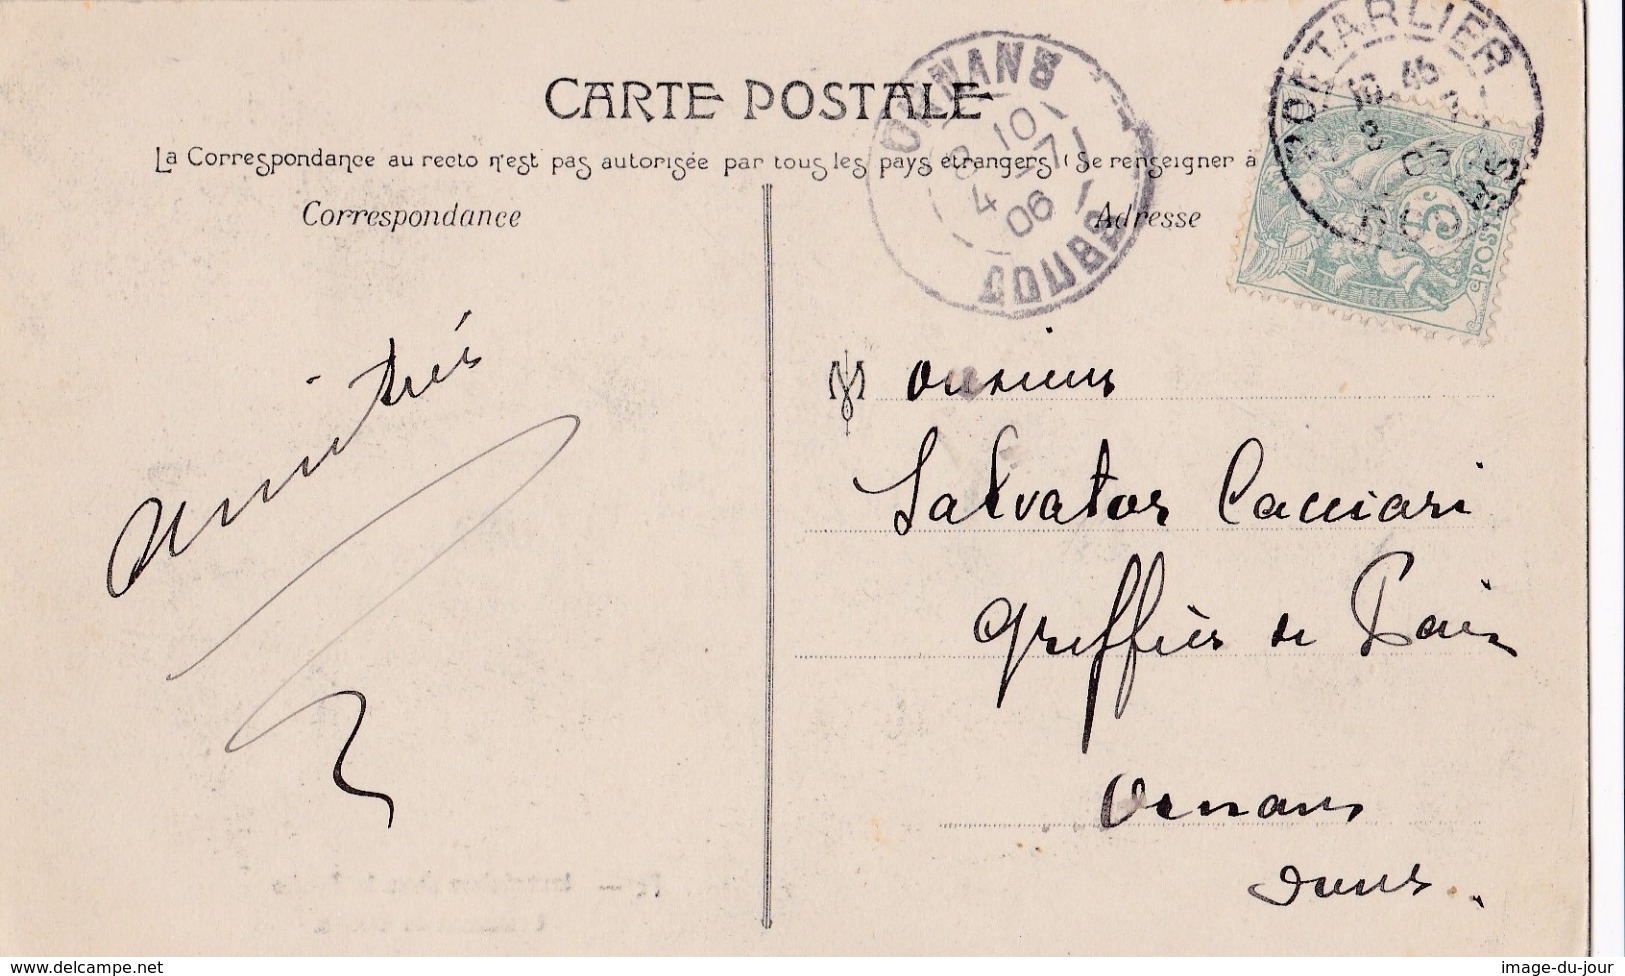 CARTE POSTALE
La Correspondance au recto n'est pas autorisée par tous les pays étrangers (Se renseigner a
Correspondance
Adresse
ORNANS
10
4 -7
06
DOUBS
PONTARLIER
DOUBS
5c
POSTES
Amitiés
Monsieur
Salvator Cacciari
Greffier de Paix
Ornans
Doubs.
www.delcampe.net
image-du-jour